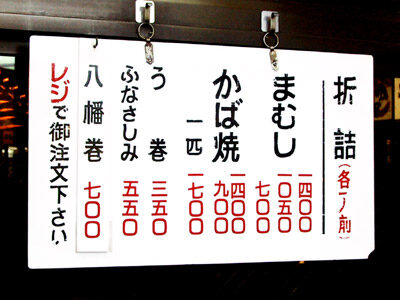 折詰(各一人前)
まむし
一四〇〇
一〇五〇
七〇〇
かば焼
一四〇〇
九〇〇
一匹
一七〇〇
う巻
三五〇
ふなさしみ
五五〇
八幡巻
七〇〇
レジで御注文下さい